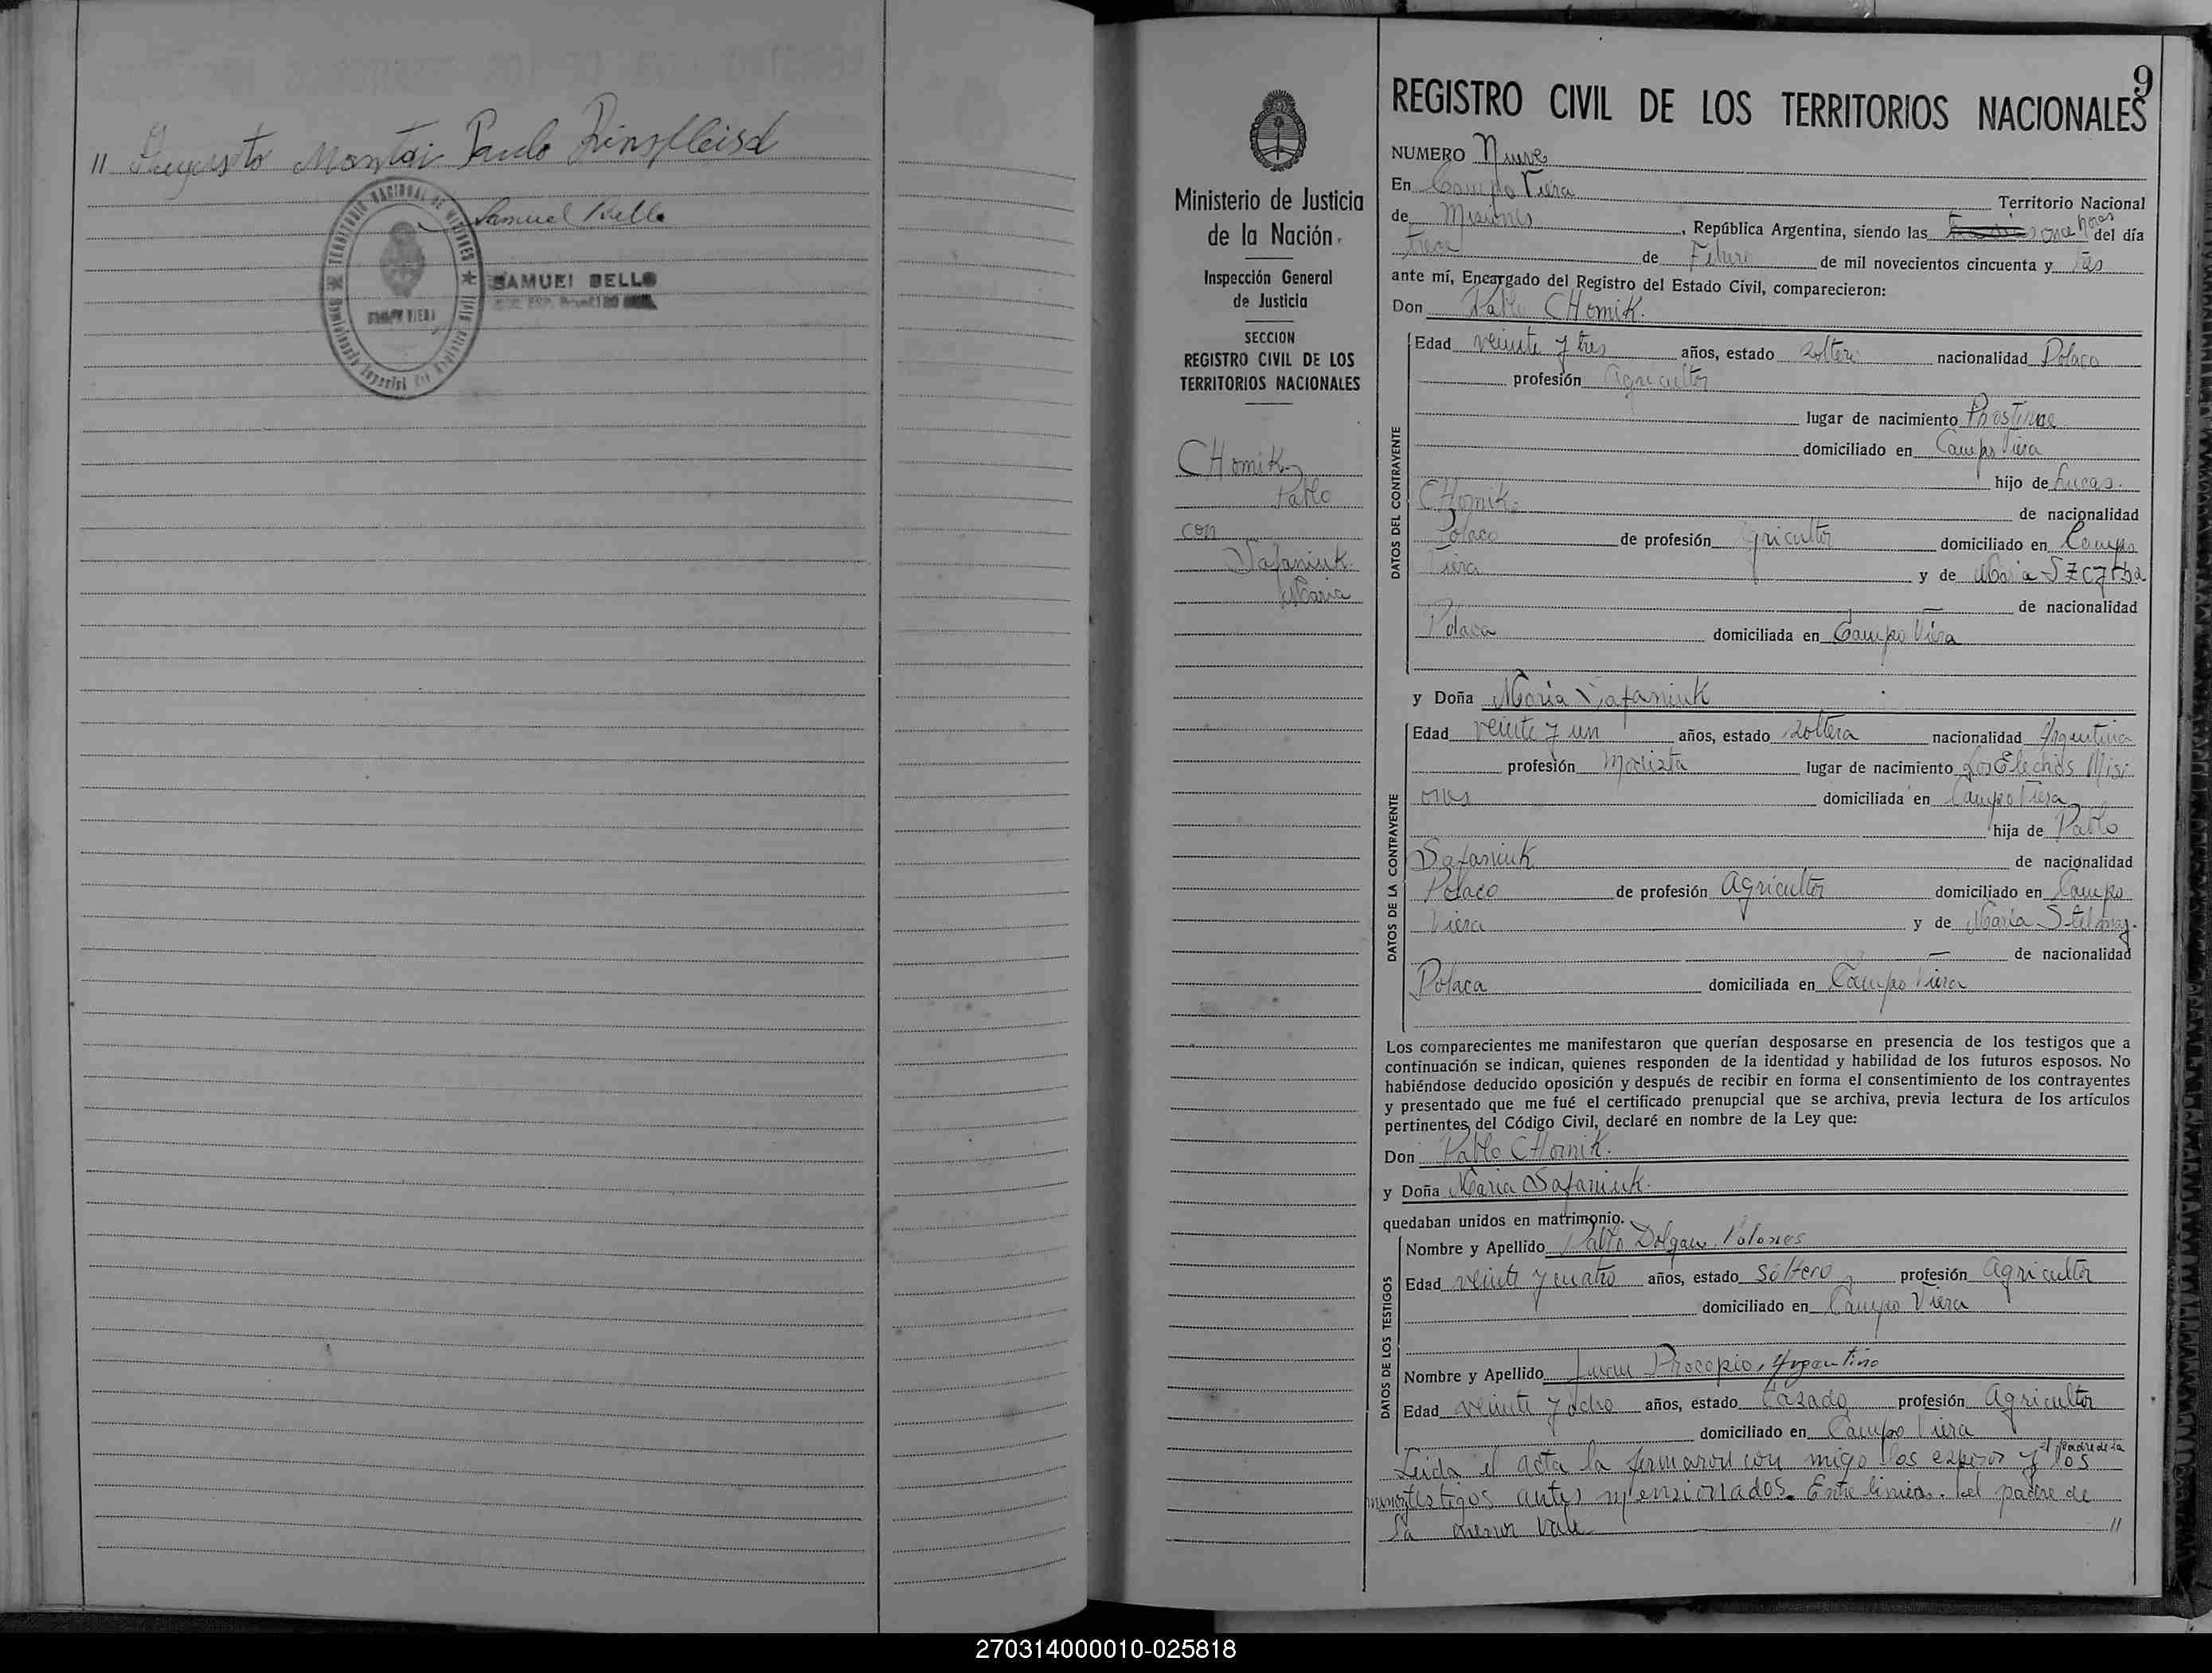 " Augusto Montai Paulo Rinsfleisd
Samuel Bello
TERRITORIO NACIONAL DE MISIONES
CAMPO VIERA
SAMUEL BELLO
9
REGISTRO CIVIL DE LOS TERRITORIOS NACIONALES
Ministerio de Justicia
de la Nación
Inspección General
de Justicia
SECCION
REGISTRO CIVIL DE LOS
TERRITORIOS NACIONALES
CHomik
Pablo
con
Safaniuk
Maria
NUMERO Nueve
En Campo Viera Territorio Nacional
de Misiones, República Argentina, siendo las once horas del día
trece de Febrero de mil novecientos cincuenta y Tres
ante mí, Encargado del Registro del Estado Civil, comparecieron:
Don Pablo CHomik.
DATOS DEL CONTRAYENTE
Edad veinte y tres años, estado soltero nacionalidad Polaco
profesión agricultor
lugar de nacimiento
domiciliado en Campo Viera
hijo de Lucas.
CHomik. de nacionalidad
Polaco de profesión Agricultor domiciliado en Campo
Viera y de Maria SZCZrba
de nacionalidad
Polaca domiciliada en Campo Viera
y Doña Maria Safaniuk
DATOS DE LA CONTRAYENTE
Edad veinte y un años, estado soltera nacionalidad Argentina
profesión Modista lugar de nacimiento Los Elechos Misi
ones domiciliada en Campo Viera
hija de Pablo
Safaniuk de nacionalidad
Polaco de profesión Agricultor domiciliado en Campo
Viera y de Maria Stelmaj.
de nacionalidad
Polaca domiciliada en Campo Viera
Los comparecientes me manifestaron que querían desposarse en presencia de los testigos que a
continuación se indican, quienes responden de la identidad y habilidad de los futuros esposos. No
habiéndose deducido oposición y después de recibir en forma el consentimiento de los contrayentes
y presentado que me fué el certificado prenupcial que se archiva, previa lectura de los artículos
pertinentes del Código Civil, declaré en nombre de la Ley que:
Don Pablo CHomik.
y Doña Maria Safaniuk.
quedaban unidos en matrimonio.
DATOS DE LOS TESTIGOS
Nombre y Apellido Pablo Dolgan. Polones
Edad veinte y cuatro años, estado Soltero profesión Agricultor
domiciliado en Campo Viera
Nombre y Apellido Juan Procopio, Argentino
Edad veinte y ocho años, estado Casado profesión Agricultor
domiciliado en Campo Viera
el padre de la
Leida el acta la firmaron con migo los esposos y los
menor testigos antes mensionados. Entre lineas. el padre de
la menor vale "
270314000010-025818